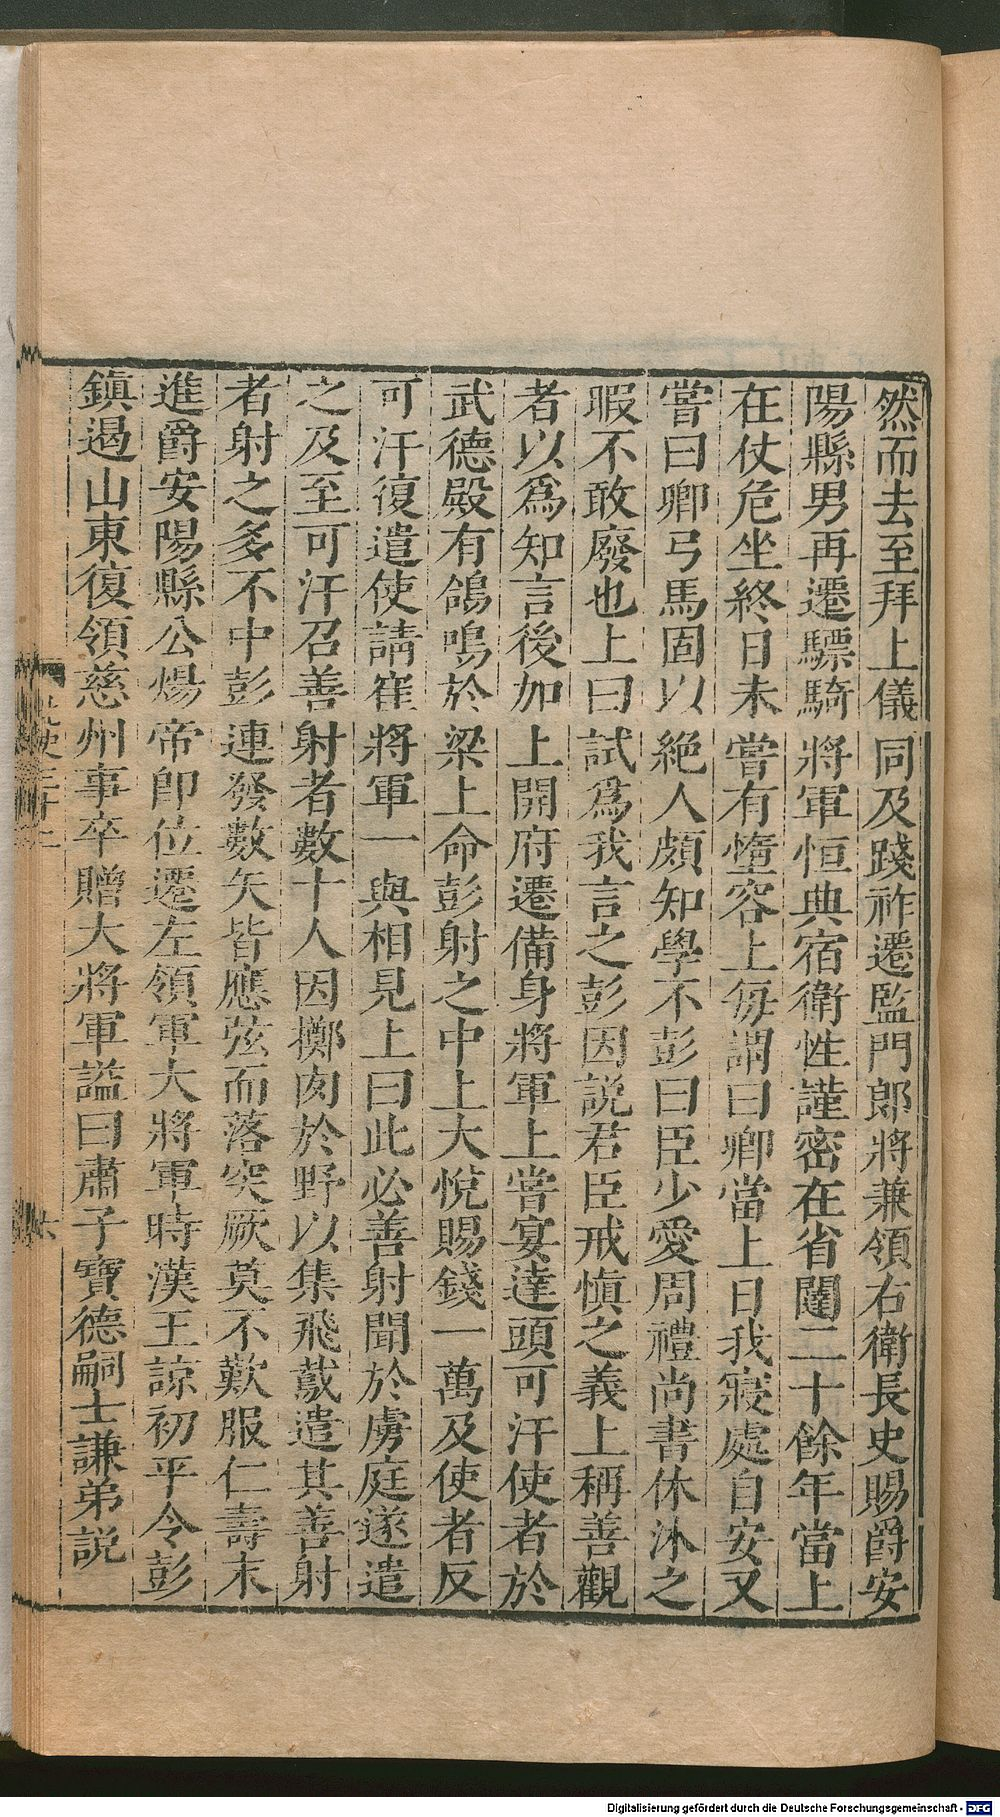 然而去至拜上儀同及踐祚遷監門郎將兼領右衛長史賜爵安
陽縣男再遷驃騎將軍恒典宿衛性謹密在省闥二十餘年當上
在仗危坐終日未嘗有墮容上每謂曰卿當上日我寢處自安又
嘗曰卿弓馬固以絶人頗知學不彭曰臣少愛周禮尚書休沐之
暇不敢廢也上曰試爲我言之彭因説君臣戒慎之義上稱善觀
者以爲知言後加上開府遷備身將軍上嘗宴達頭可汗使者於
武德殿有鴿鳴於梁上命彭射之中上大悅賜錢一萬及使者反
可汗復遣使請崔將軍一與相見上曰此必善射聞於虜庭遂遣
之及至可汗召善射者數十人因擲肉於野以集飛䳒遣其善射
者射之多不中彭連發數矢皆應弦而落突厥莫不歎服仁壽末
進爵安陽縣公煬帝卽位遷左領軍大將軍時漢王諒初平令彭
鎮遏山東復領慈州事卒贈大將軍謚曰肅子寶德嗣士謙弟説
Digitalisierung gefördert durch die Deutsche Forschungsgemeinschaft - DFG